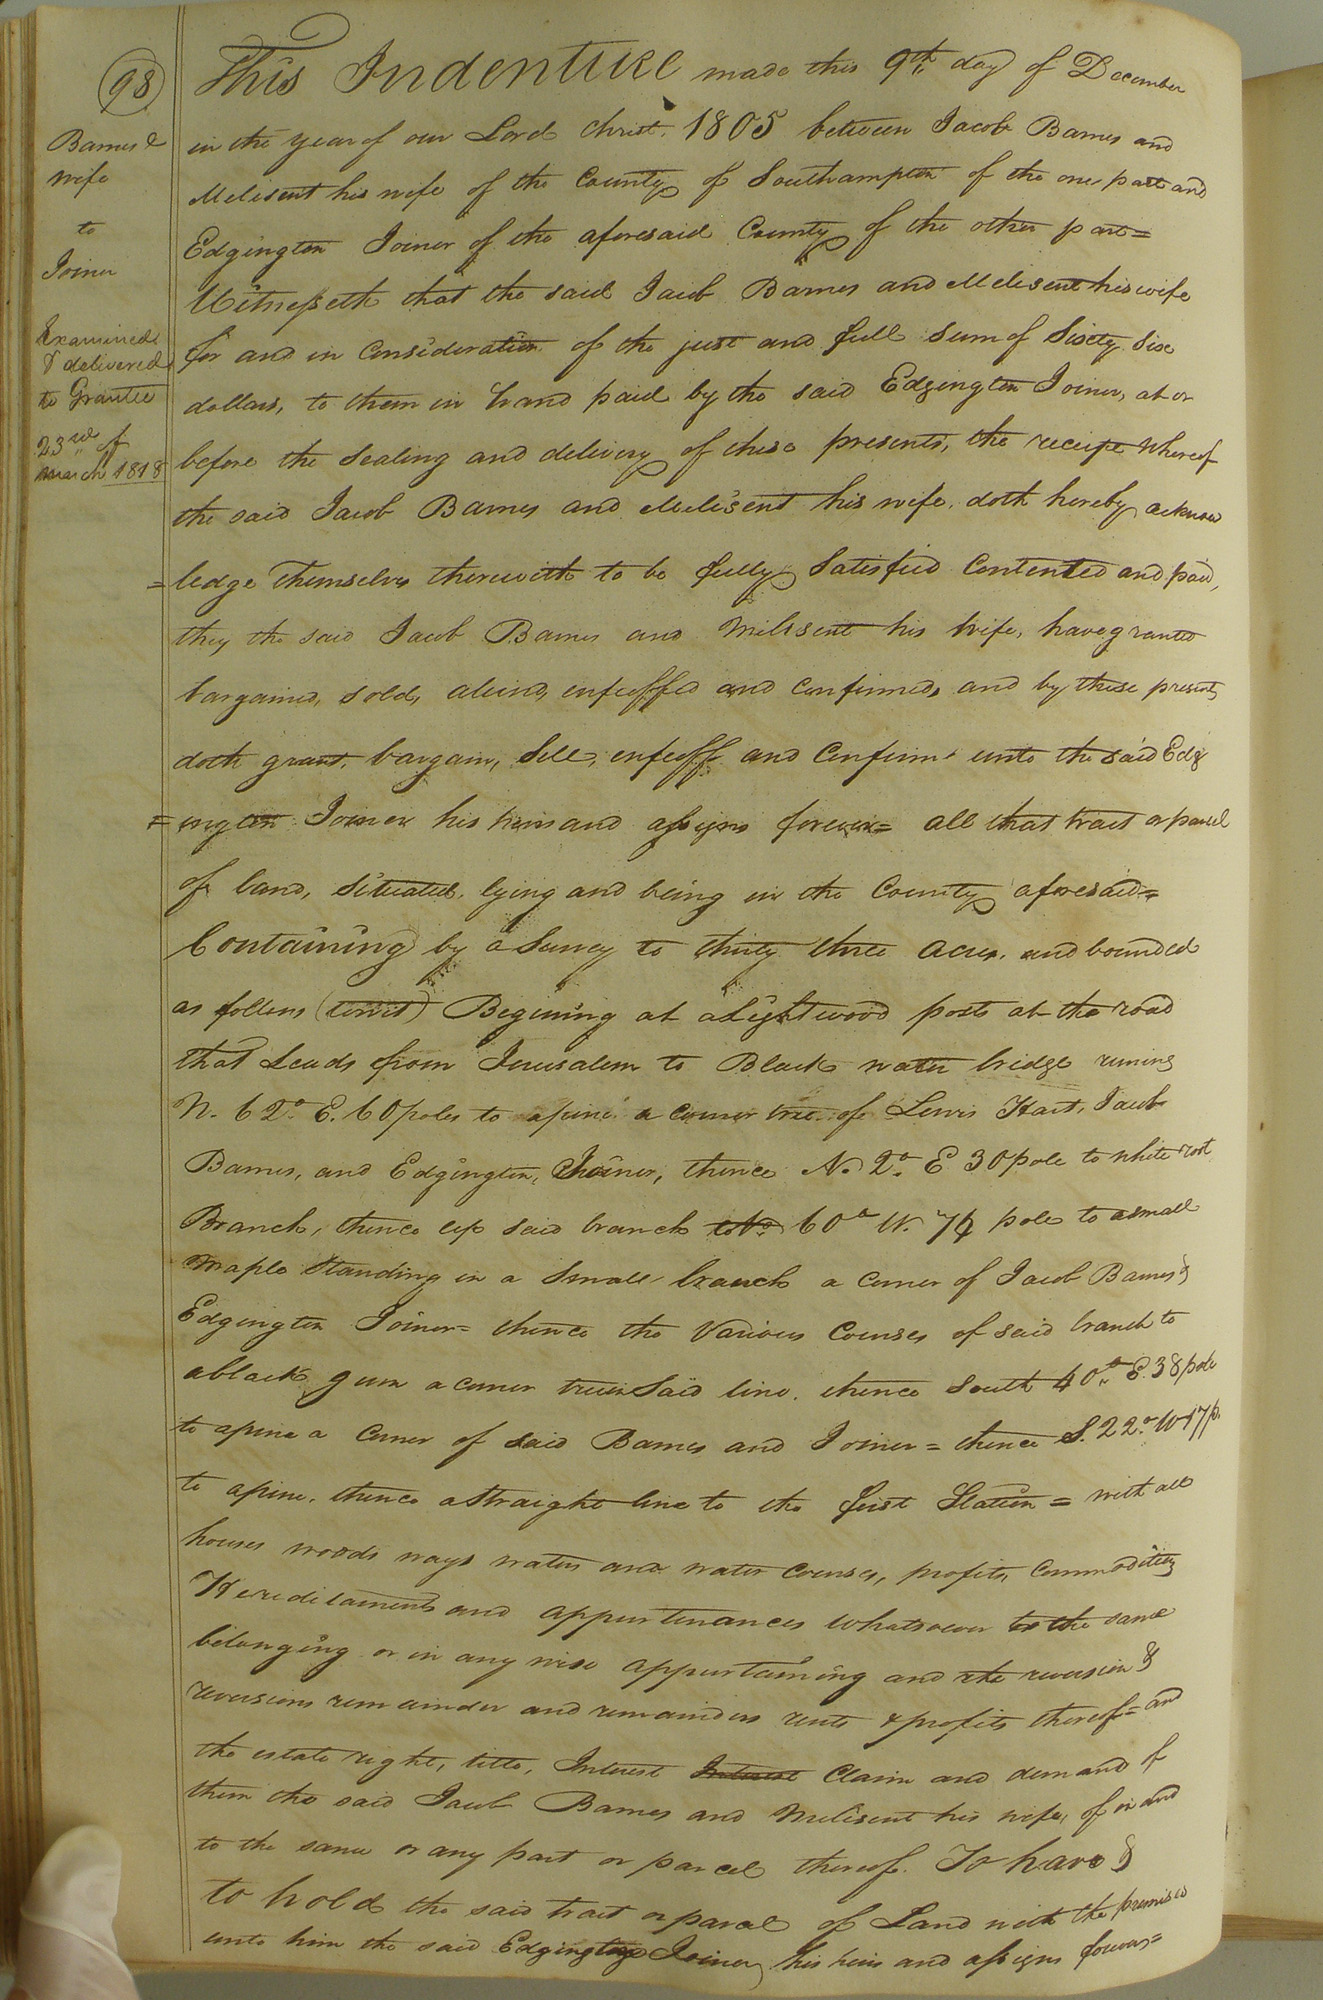 98
Barnes &
wife
to
Joiner
Examined
& delivered
to Grantee
23rd of
march 1818
This Indenture made this 9th day of December
in the year of our Lord Christ. 1805 between Jacob Barnes and
Melisent his wife of the County of Southampton of the one part and
Edgington Joiner of the aforesaid County of the other part=
Witnesseth that the said Jacob Barnes and Melisent his wife
for and in Consideration of the just and full Sum of Sixty Six
dollars, to them in hand paid by the said Edgington Joiner, at or
before the Sealing and delivery of these presents, the receipt whereof
the said Jacob Barnes and Melisent his wife, doth hereby acknow
=ledge themselves therewith to be fully Satisfied Contented and paid,
they the said Jacob Barnes and Milisent his Wife, have granted
bargained, sold, aliend, enfeoffed and Confirmed, and by these presents
doth grant, bargain, Sell, enfeoff and Confirm unto the said Edg
=ington Joiner his heirs and assigns forever= all that tract or parcel
of land, Situated, lying and being in the County aforesaid=
Containing by a Survey to thirty three acres. and bounded
as follows (towit) Begining at a Lightwood post at the road
that Leads from Jerusalem to Black water bridge runing
N. 62° E. 60 poles to a pine a corner tree of Lewis Hart, Jacob
Barnes, and Edgington, Joiner, thence N. 2° E 30 pole to white root
Branch, thence up said branch to No 60° W. 74 pole to a small
Maple Standing in a Small branch a corner of Jacob Barnes &
Edgington Joiner= thence the Various Courses of said branch to
a black gum a corner tree in Said line. thence South 40° E. 38 pole
to a pine a Corner of said Barnes and Joiner= thence S. 22° W 17 p.
to a pine, thence a Straight line to the first Station= with all
houses woods ways waters and water Courses, profits, Commodities
Hereditaments and appurtenances whatsoever to the same
belonging or in any wise appurtaining and the reversion &
reversions remainder and remainders rents & profits thereof= and
the estate right, title, Interest Interest Claim and demand of
them the said Jacob Barnes and Milisent his wife, of in and
to the same or any part or parcel thereof. To have &
to hold the said tract or parcel of Land with the premises
unto him the said Edgington Joiner, his heirs and assigns forever=